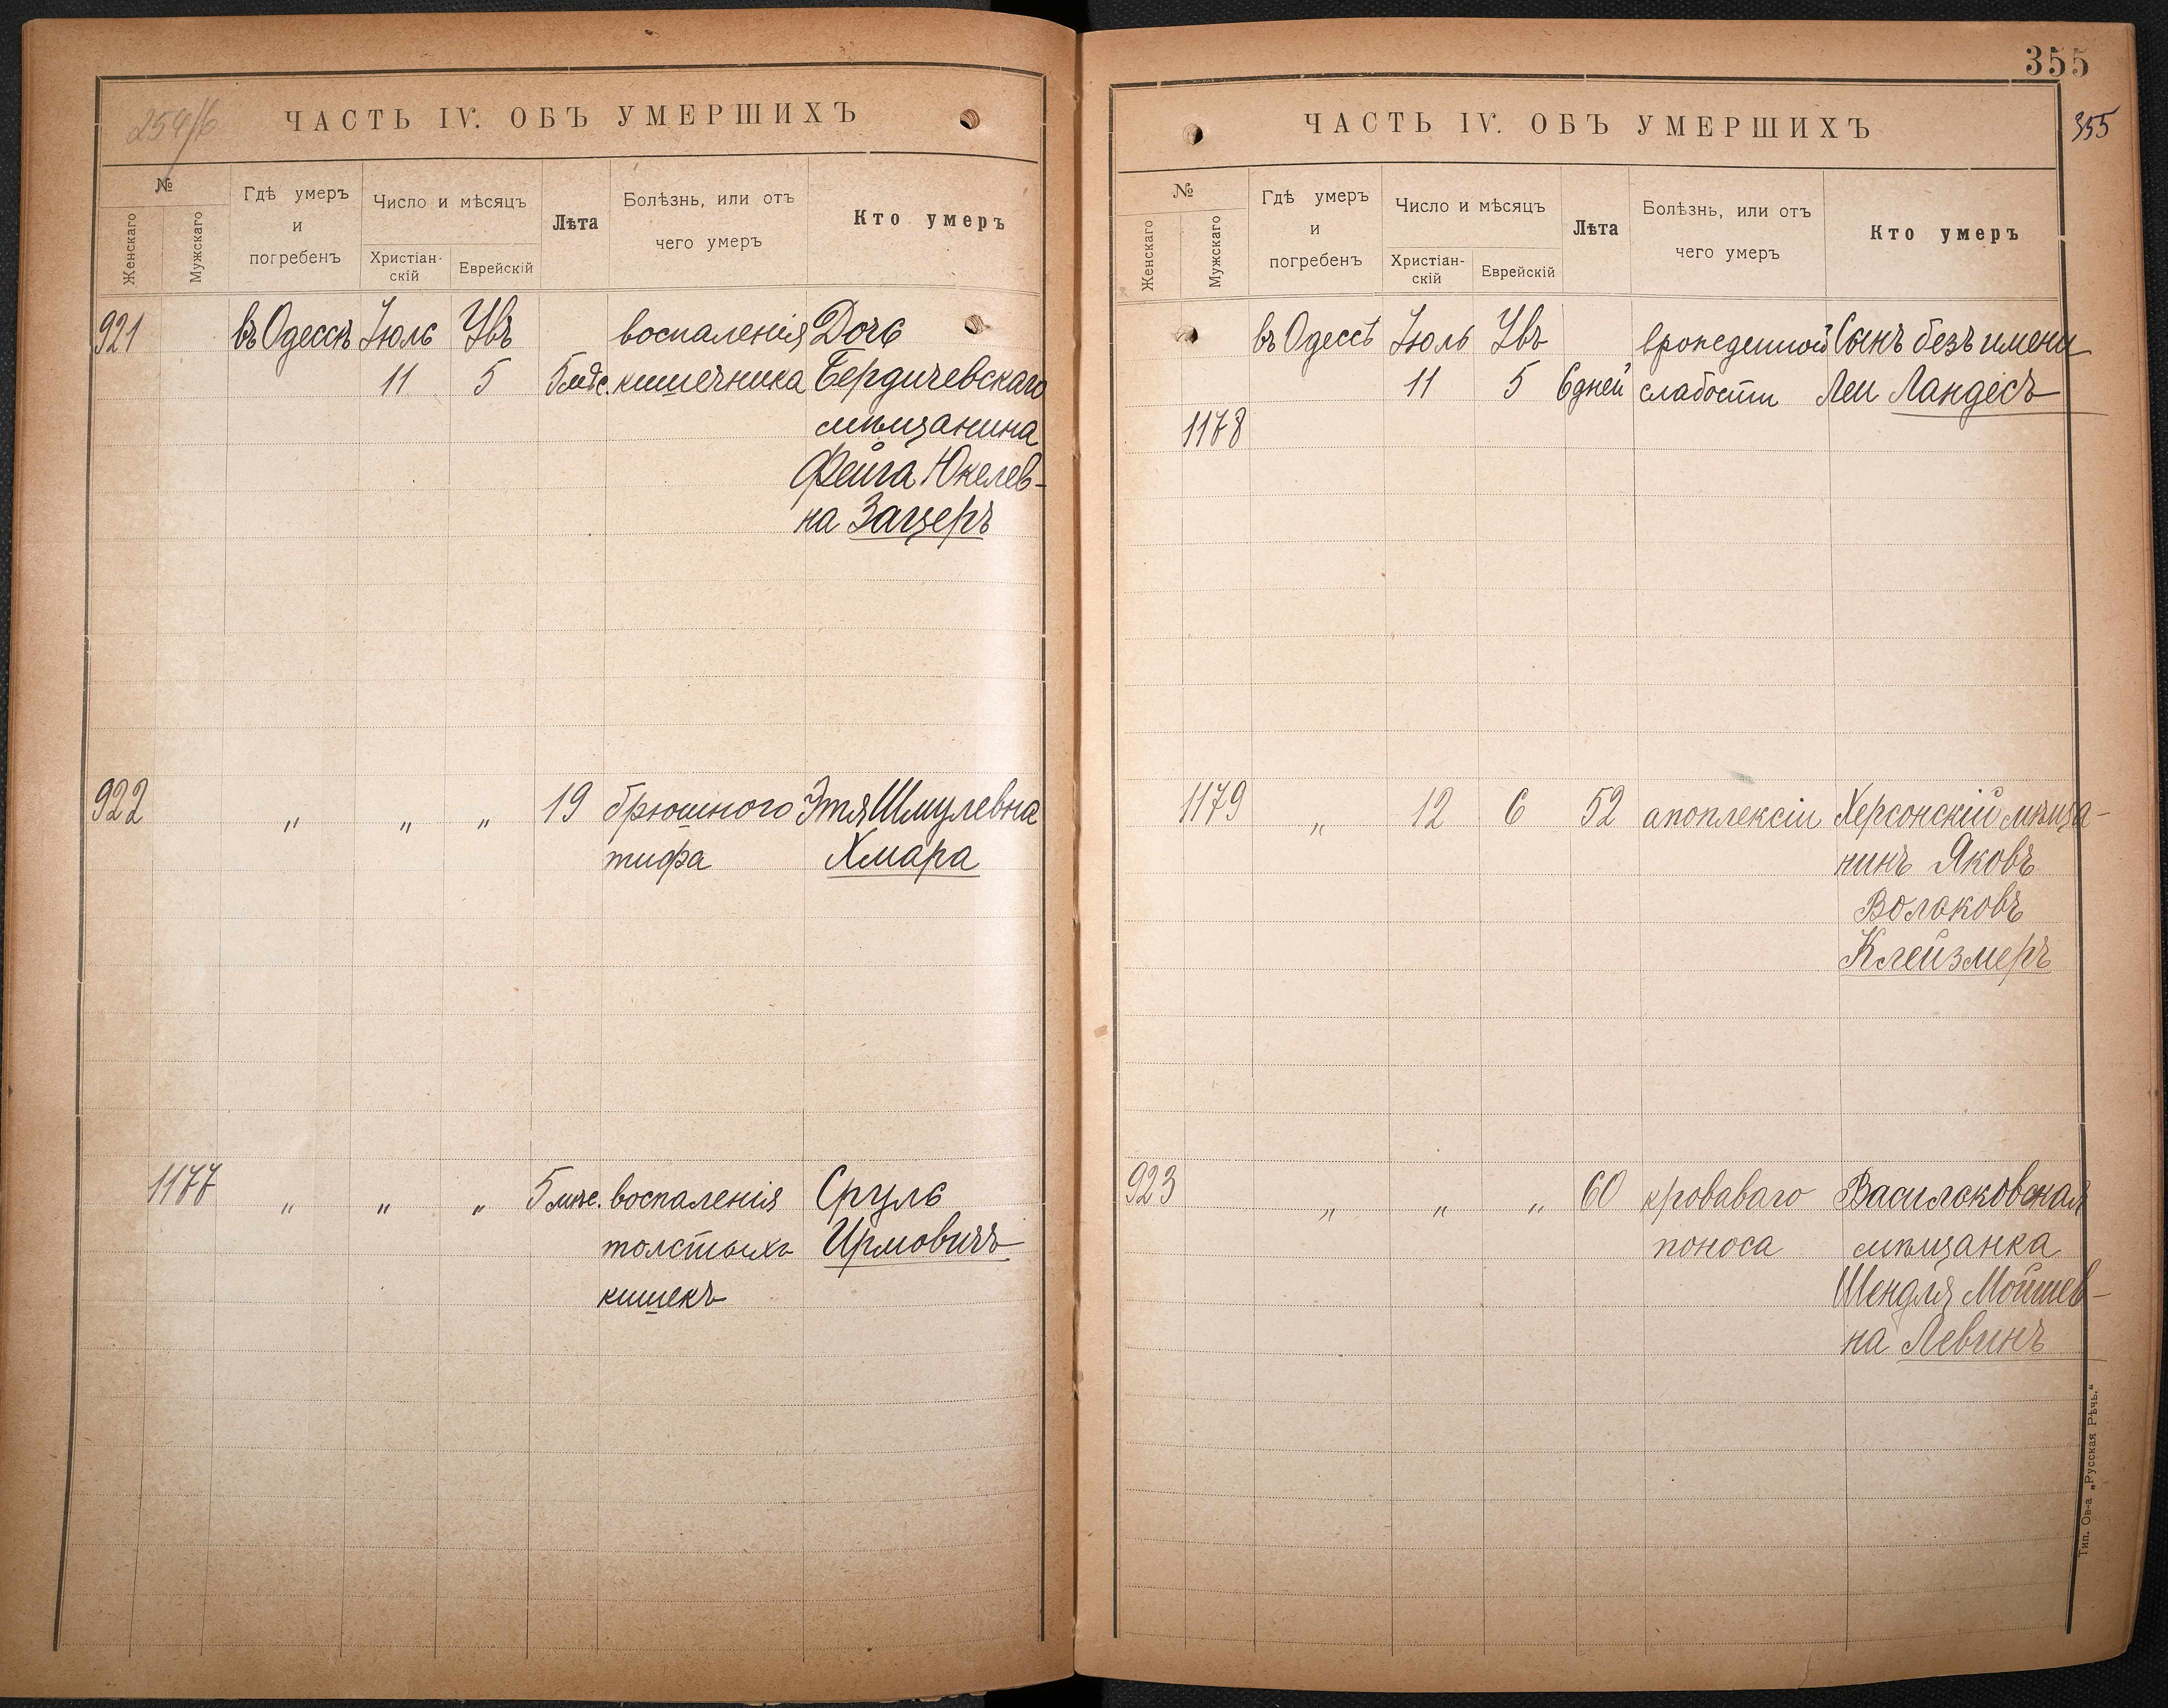 254/6
ЧАСТЬ IV. ОБЪ УМЕРШИХЪ
№
Женскаго
Мужскаго
Гдѣ умеръ
и
погребенъ
Число и мѣсяцъ
Христіан-
скій
Еврейскій
Лѣта
Болѣзнь, или отъ
чего умеръ
Кто умеръ
921 въ Одессѣ Іюль Увъ воспаленія Дочь
11 5 5 мѣс. кишечника Бердичевскаго
мѣщанина
Фейга Юкелев-
на Зацеръ
922 " " " 19 брюшного Этя Шмулевна
тифа Хмара
1177 " " " 5 мѣс. воспаленія Сруль
толстыхъ Ирмовичъ
кишекъ
355
355
ЧАСТЬ IV. ОБЪ УМЕРШИХЪ
№
Женскаго
Мужскаго
Гдѣ умеръ
и
погребенъ
Число и мѣсяцъ
Христіан-
скій
Еврейскій
Лѣта
Болѣзнь, или отъ
чего умеръ
Кто умеръ
въ Одессѣ Іюль Увъ врожденной Сынъ безъ имени
11 5 6 дней слабости Леи Ландесъ
1178
1179 " 12 6 52 апоплексіи Херсонскій мѣща-
нинъ Яковъ
Волковъ
Клейзмеръ
923 " " " 60 кроваваго Васильковская
поноса мѣщанка
Шендля Мошев-
на Левинъ
Тип. Ов-а „Русская Рѣчь."